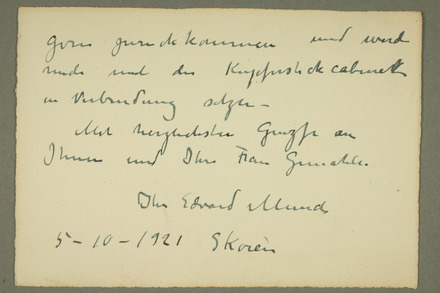 gern zurückkommen und werde
mich mit der Kupferstickcabinett
in Verbindung setzen –
Mit herzlichsten Grüsse an
Ihnen und Ihre Frau Gemahlin
Ihr Edvard Munch
5 – 10 – 1921 Skøien